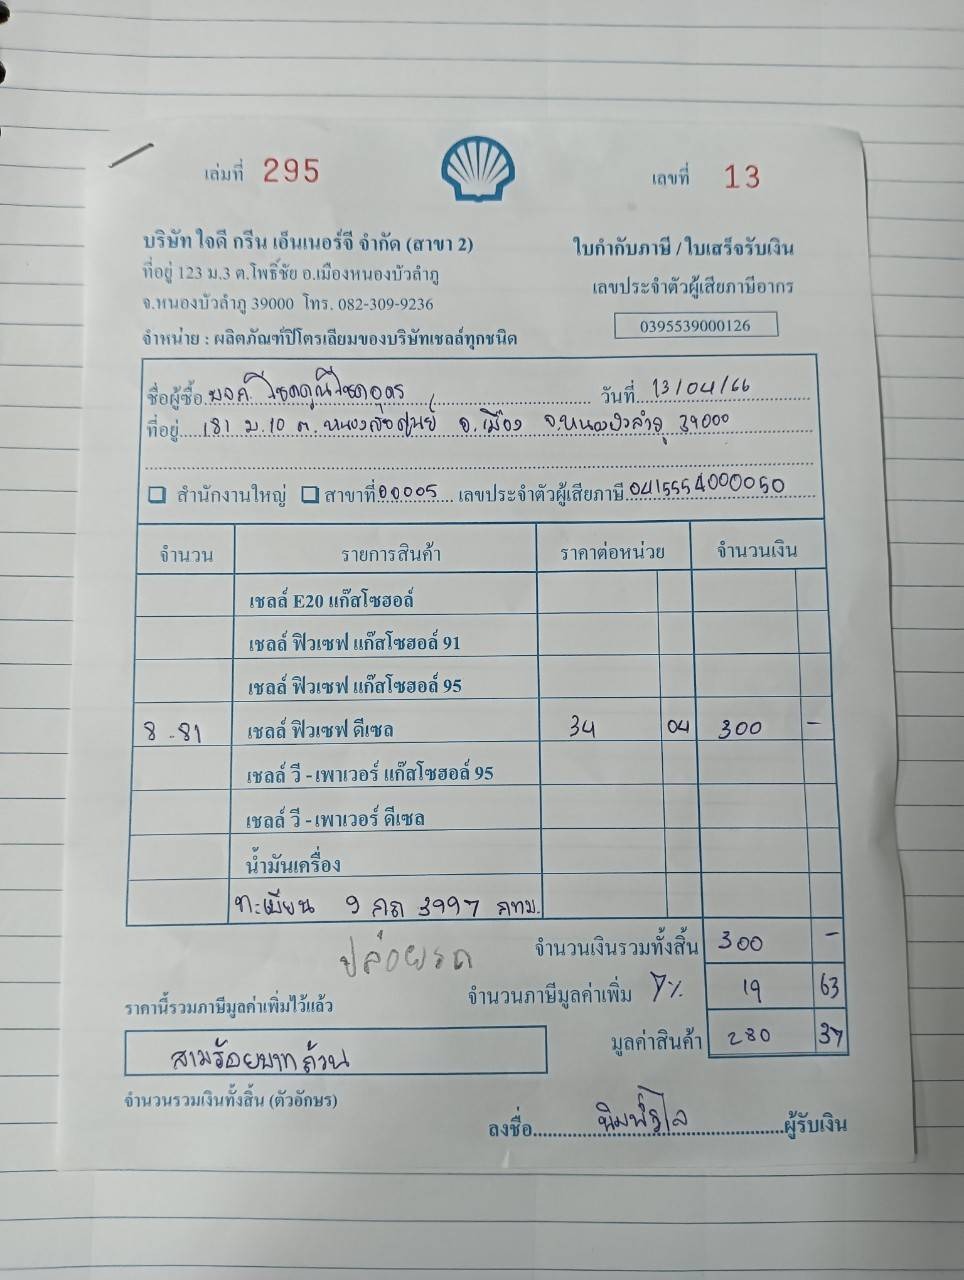 เล่มที่ 295
เลขที่ 13
บริษัท ใจดี กรีน เอ็นเนอร์จี จำกัด (สาขา 2)
ใบกำกับภาษี / ใบเสร็จรับเงิน
ที่อยู่ 123 ม.3 ต.โพธิ์ชัย อ.เมืองหนองบัวลำภู
เลขประจำตัวผู้เสียภาษีอากร
จ.หนองบัวลำภู 39000 โทร. 082-309-9236
0395539000126
จำหน่าย : ผลิตภัณฑ์ปิโตรเลียมของบริษัทเชลล์ทุกชนิด
ชื่อผู้ซื้อ วันที่ 13/04/66
ที่อยู่ 181 ม.10 ต. อ.เมือง จ.หนองบัวลำภู 39000
สำนักงานใหญ่ สาขาที่ 00005 เลขประจำตัวผู้เสียภาษี 0415554000050
จำนวน รายการสินค้า ราคาต่อหน่วย จำนวนเงิน
เชลล์ E20 แก๊สโซฮอล์
เชลล์ ฟิวเซฟ แก๊สโซฮอล์ 91
เชลล์ ฟิวเซฟ แก๊สโซฮอล์ 95
8.81 เชลล์ ฟิวเซฟ ดีเซล 34 04 300 -
เชลล์ วี - เพาเวอร์ แก๊สโซฮอล์ 95
เชลล์ วี - เพาเวอร์ ดีเซล
น้ำมันเครื่อง
ทะเบียน 3997 กทม.
จำนวนเงินรวมทั้งสิ้น 300 -
ปล่อยรถ
จำนวนภาษีมูลค่าเพิ่ม 7% 19 63
ราคานี้รวมภาษีมูลค่าเพิ่มไว้แล้ว
มูลค่าสินค้า 280 37
สามร้อยบาทถ้วน
จำนวนรวมเงินทั้งสิ้น (ตัวอักษร)
ลงชื่อ ผู้รับเงิน